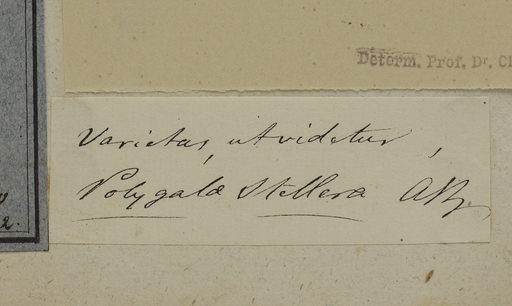 Determ. Prof. Dr. C
Varietas, ut videtur,
Polygalæ Stellera
2.